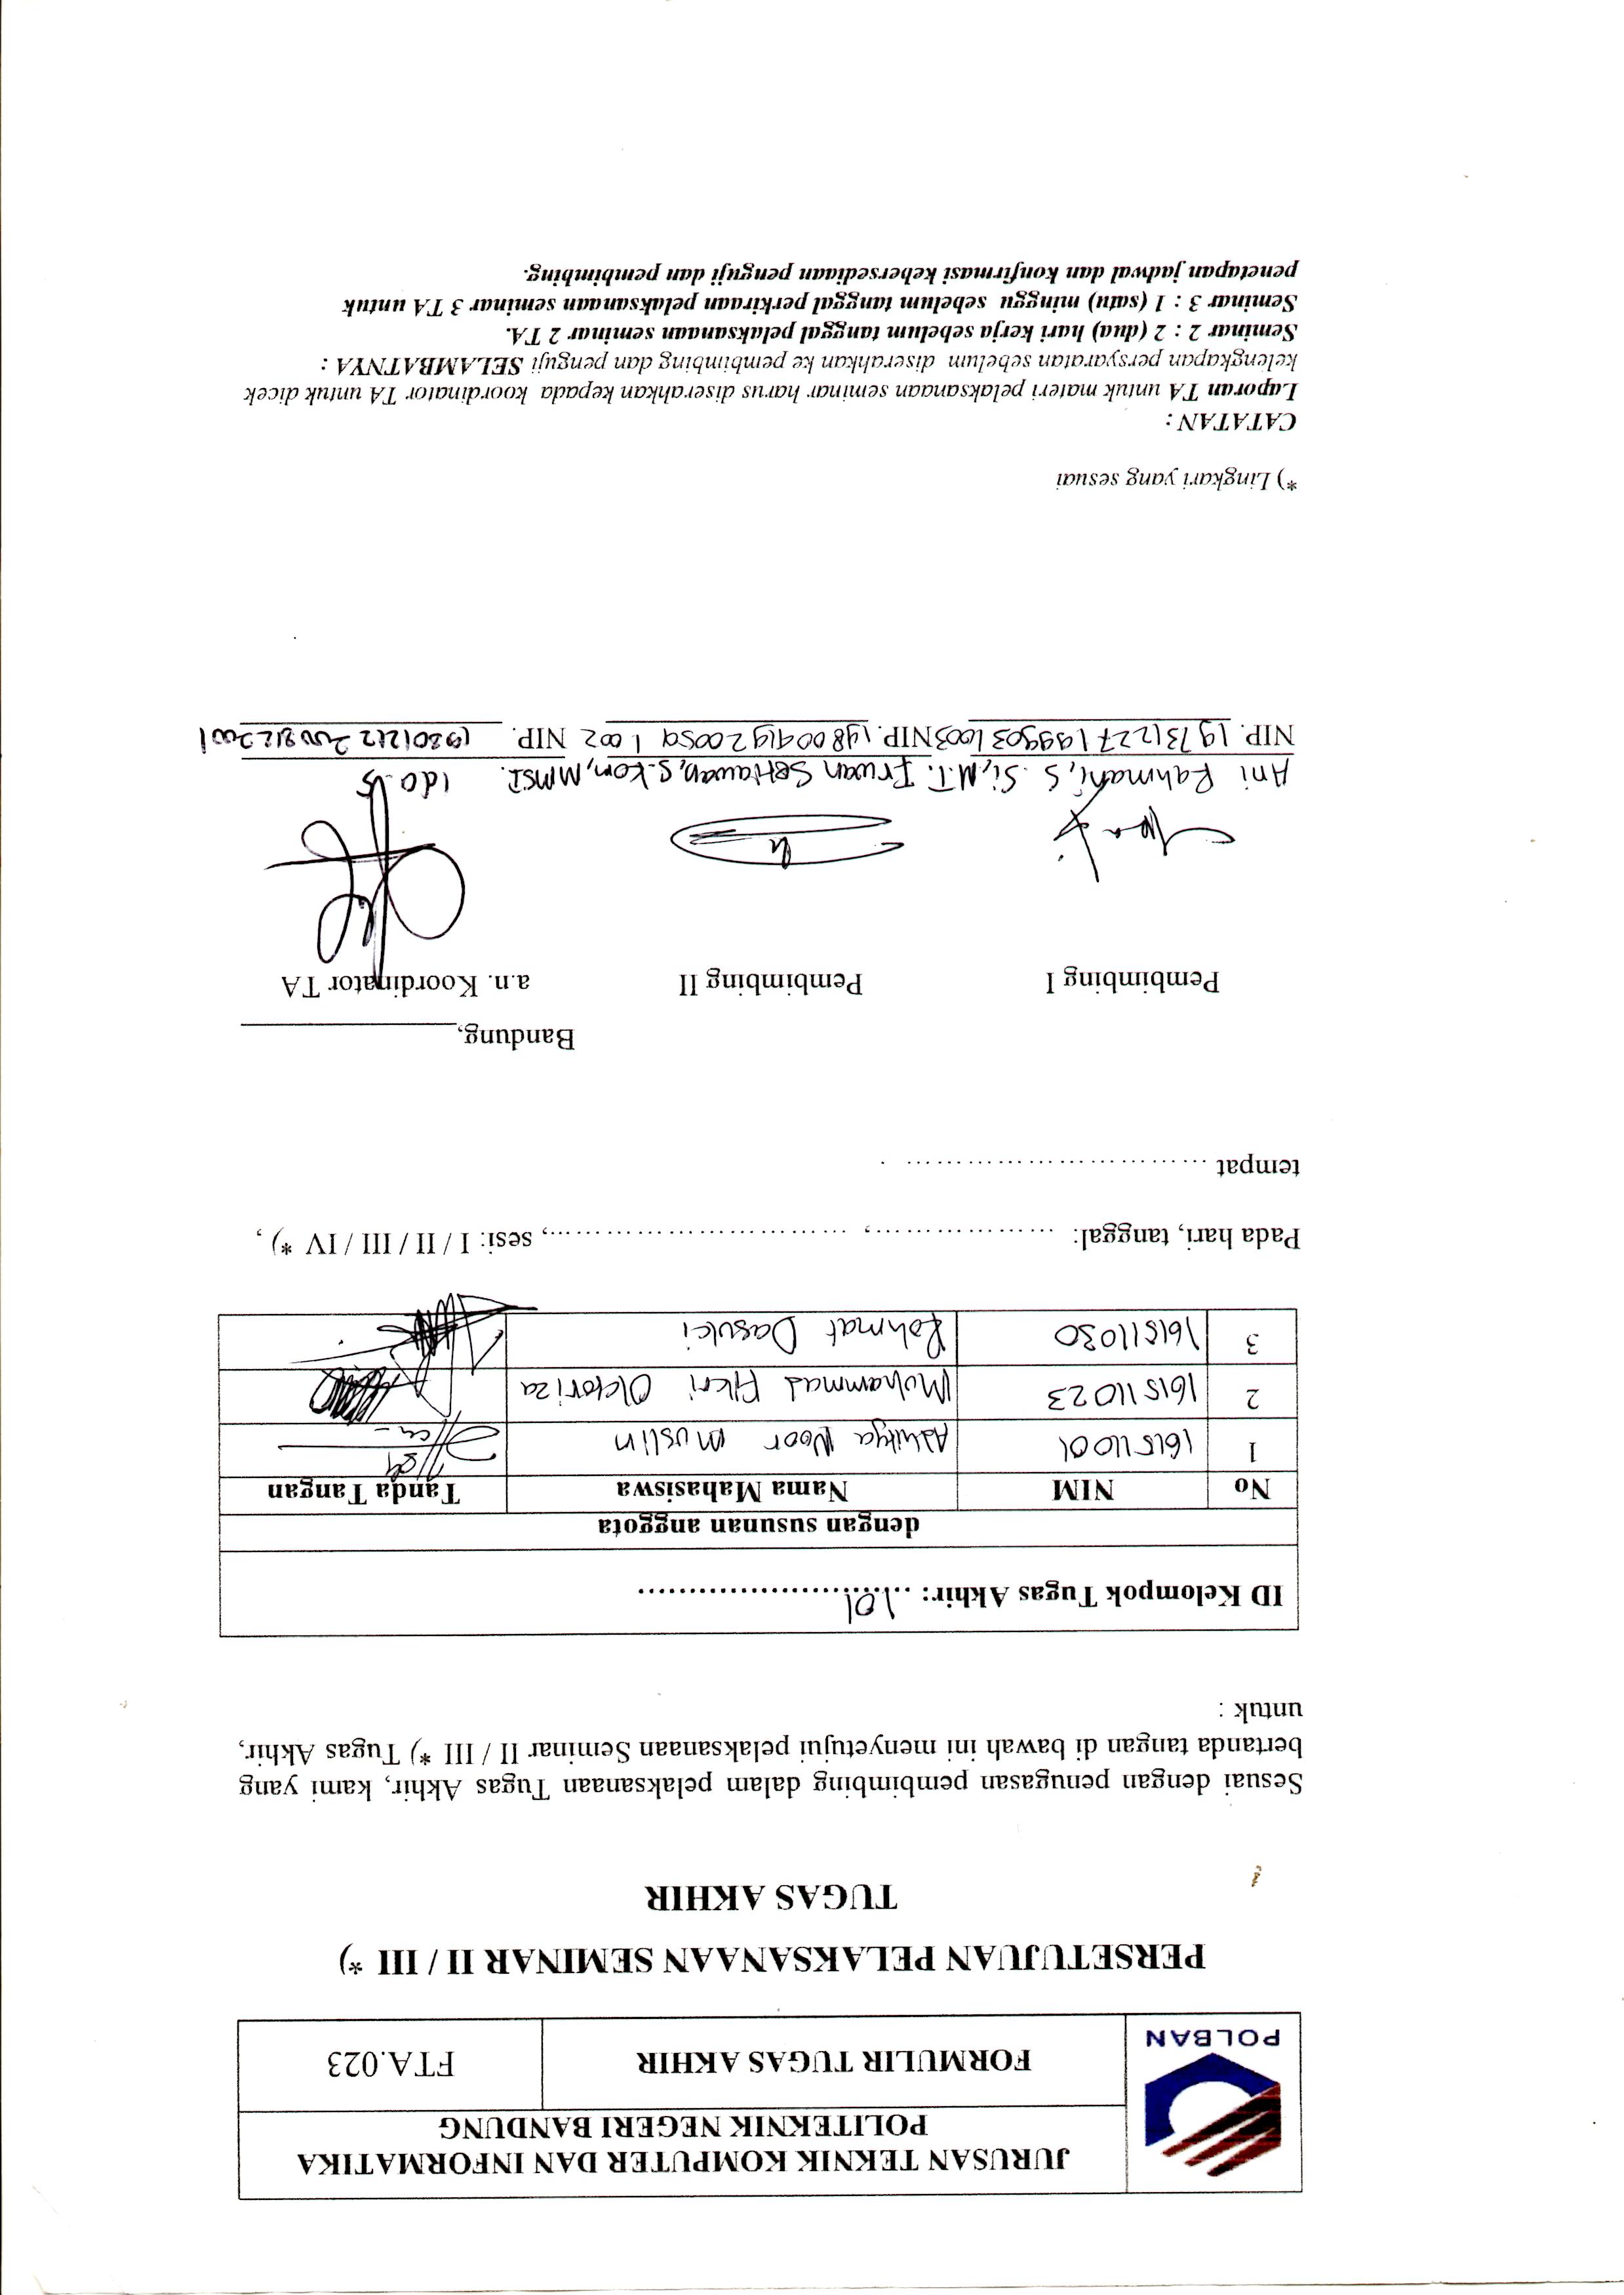 POLBAN
JURUSAN TEKNIK KOMPUTER DAN INFORMATIKA
POLITEKNIK NEGERI BANDUNG
FORMULIR TUGAS AKHIR
FTA.023
PERSETUJUAN PELAKSANAAN SEMINAR II / III *)
TUGAS AKHIR
Sesuai dengan penugasan pembimbing dalam pelaksanaan Tugas Akhir, kami yang
bertanda tangan di bawah ini menyetujui pelaksanaan Seminar II / III *) Tugas Akhir,
untuk :
ID Kelompok Tugas Akhir: ...101........................
dengan susunan anggota
No NIM Nama Mahasiswa Tanda Tangan
1 161511001 Adhitya Noor Muslim
2 161511023 Mohammad Fikri Oktoriza
3 161511030 Rohmat Dasuki
Pada hari, tanggal: ...................., ................................., sesi: I / II / III / IV *) ,
tempat ............................... .
Bandung,
Pembimbing I Pembimbing II a.n. Koordinator TA
Ani Rahmani, S. Si, M.T. Irwan Setiawan, S.Kom, MMSI.
NIP. 197312271999031003 NIP. 198004192005011002 NIP.
*) Lingkari yang sesuai
CATATAN :
Laporan TA untuk materi pelaksanaan seminar harus diserahkan kepada koordinator TA untuk dicek
kelengkapan persyaratan sebelum diserahkan ke pembimbing dan penguji SELAMBATNYA :
Seminar 2 : 2 (dua) hari kerja sebelum tanggal pelaksanaan seminar 2 TA.
Seminar 3 : 1 (satu) minggu sebelum tanggal perkiraan pelaksanaan seminar 3 TA untuk
penetapan jadwal dan konfirmasi kebersediaan penguji dan pembimbing.